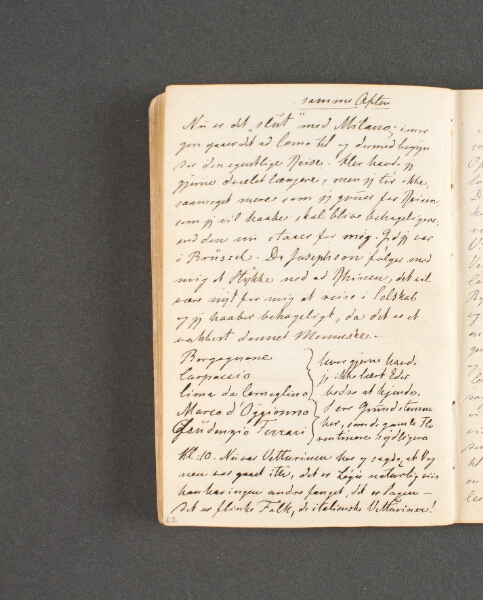 samme Aften
Nu er det "slut" med Milano; imor
gen gaaer det ad Como til og dermed begyn
der den egentlige Reise. Her havde jeg
gjerne dvælet længere, men jeg tør ikke,
saameget mere som jeg gruer for Reisen,
som jeg vil haabe skal blive behageligere,
end den nu staaer for mig. Gid jeg var
i Brüssel. Dr Josephson følger med
mig et Stykke ned ad Rhinen, det vil
være nyt for mig at reise i Selskab
og jeg haaber behageligt, da det er et
vakkert dannet Menneske.
Borgognone
Carpaccio
Cima da Conegliano
Marco d'Oggionno
Gaudenzio Ferrari
hvor gjerne havde
jeg ikke lært Eder
bedre at kjende.
I ere Grundstenene
her, som de gamle Flo
rentinere sydligere
Kl: 10. Nu var Vetturinen her og sagde, at Vog
nen var gaaet itu, det er Løgn naturligviis
han har ingen andre fanget, det er Sagen –
det er flinke Folk, de italienske Vetturiner!